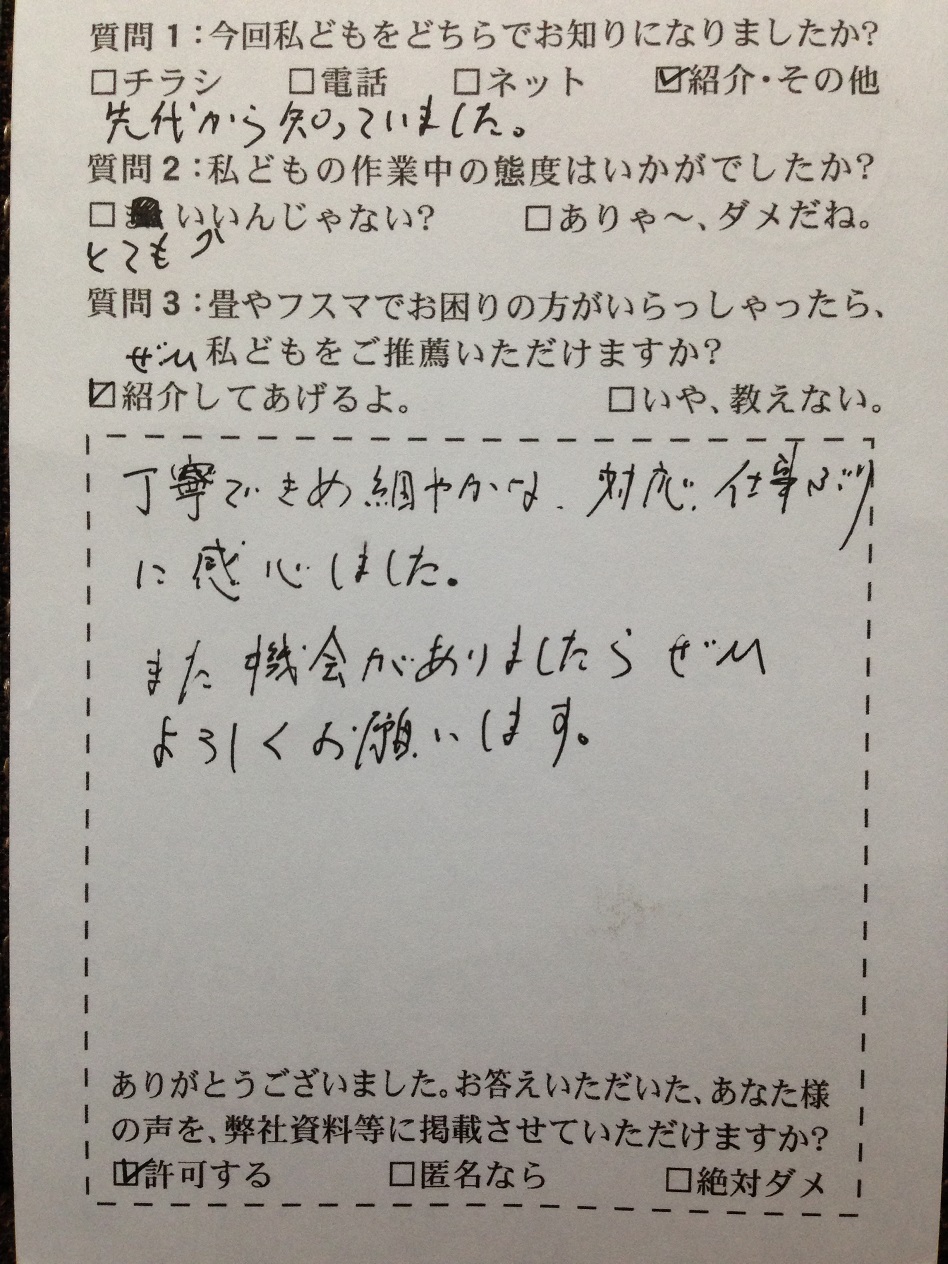 質問1:今回私どもをどちらでお知りになりましたか?
□チラシ □電話 □ネット ☑紹介・その他
先代から知っていました。
質問2:私どもの作業中の態度はいかがでしたか?
□ いいんじゃない? □ありゃ〜、ダメだね。
とても
質問3:畳やフスマでお困りの方がいらっしゃったら、
ぜひ私どもをご推薦いただけますか?
☑紹介してあげるよ。 □いや、教えない。
丁寧できめ細やかな、対応、仕事ぶり
に感心しました。
また機会がありましたらぜひ
よろしくお願いします。
ありがとうございました。お答えいただいた、あなた様
の声を、弊社資料等に掲載させていただけますか?
☑許可する □匿名なら □絶対ダメ